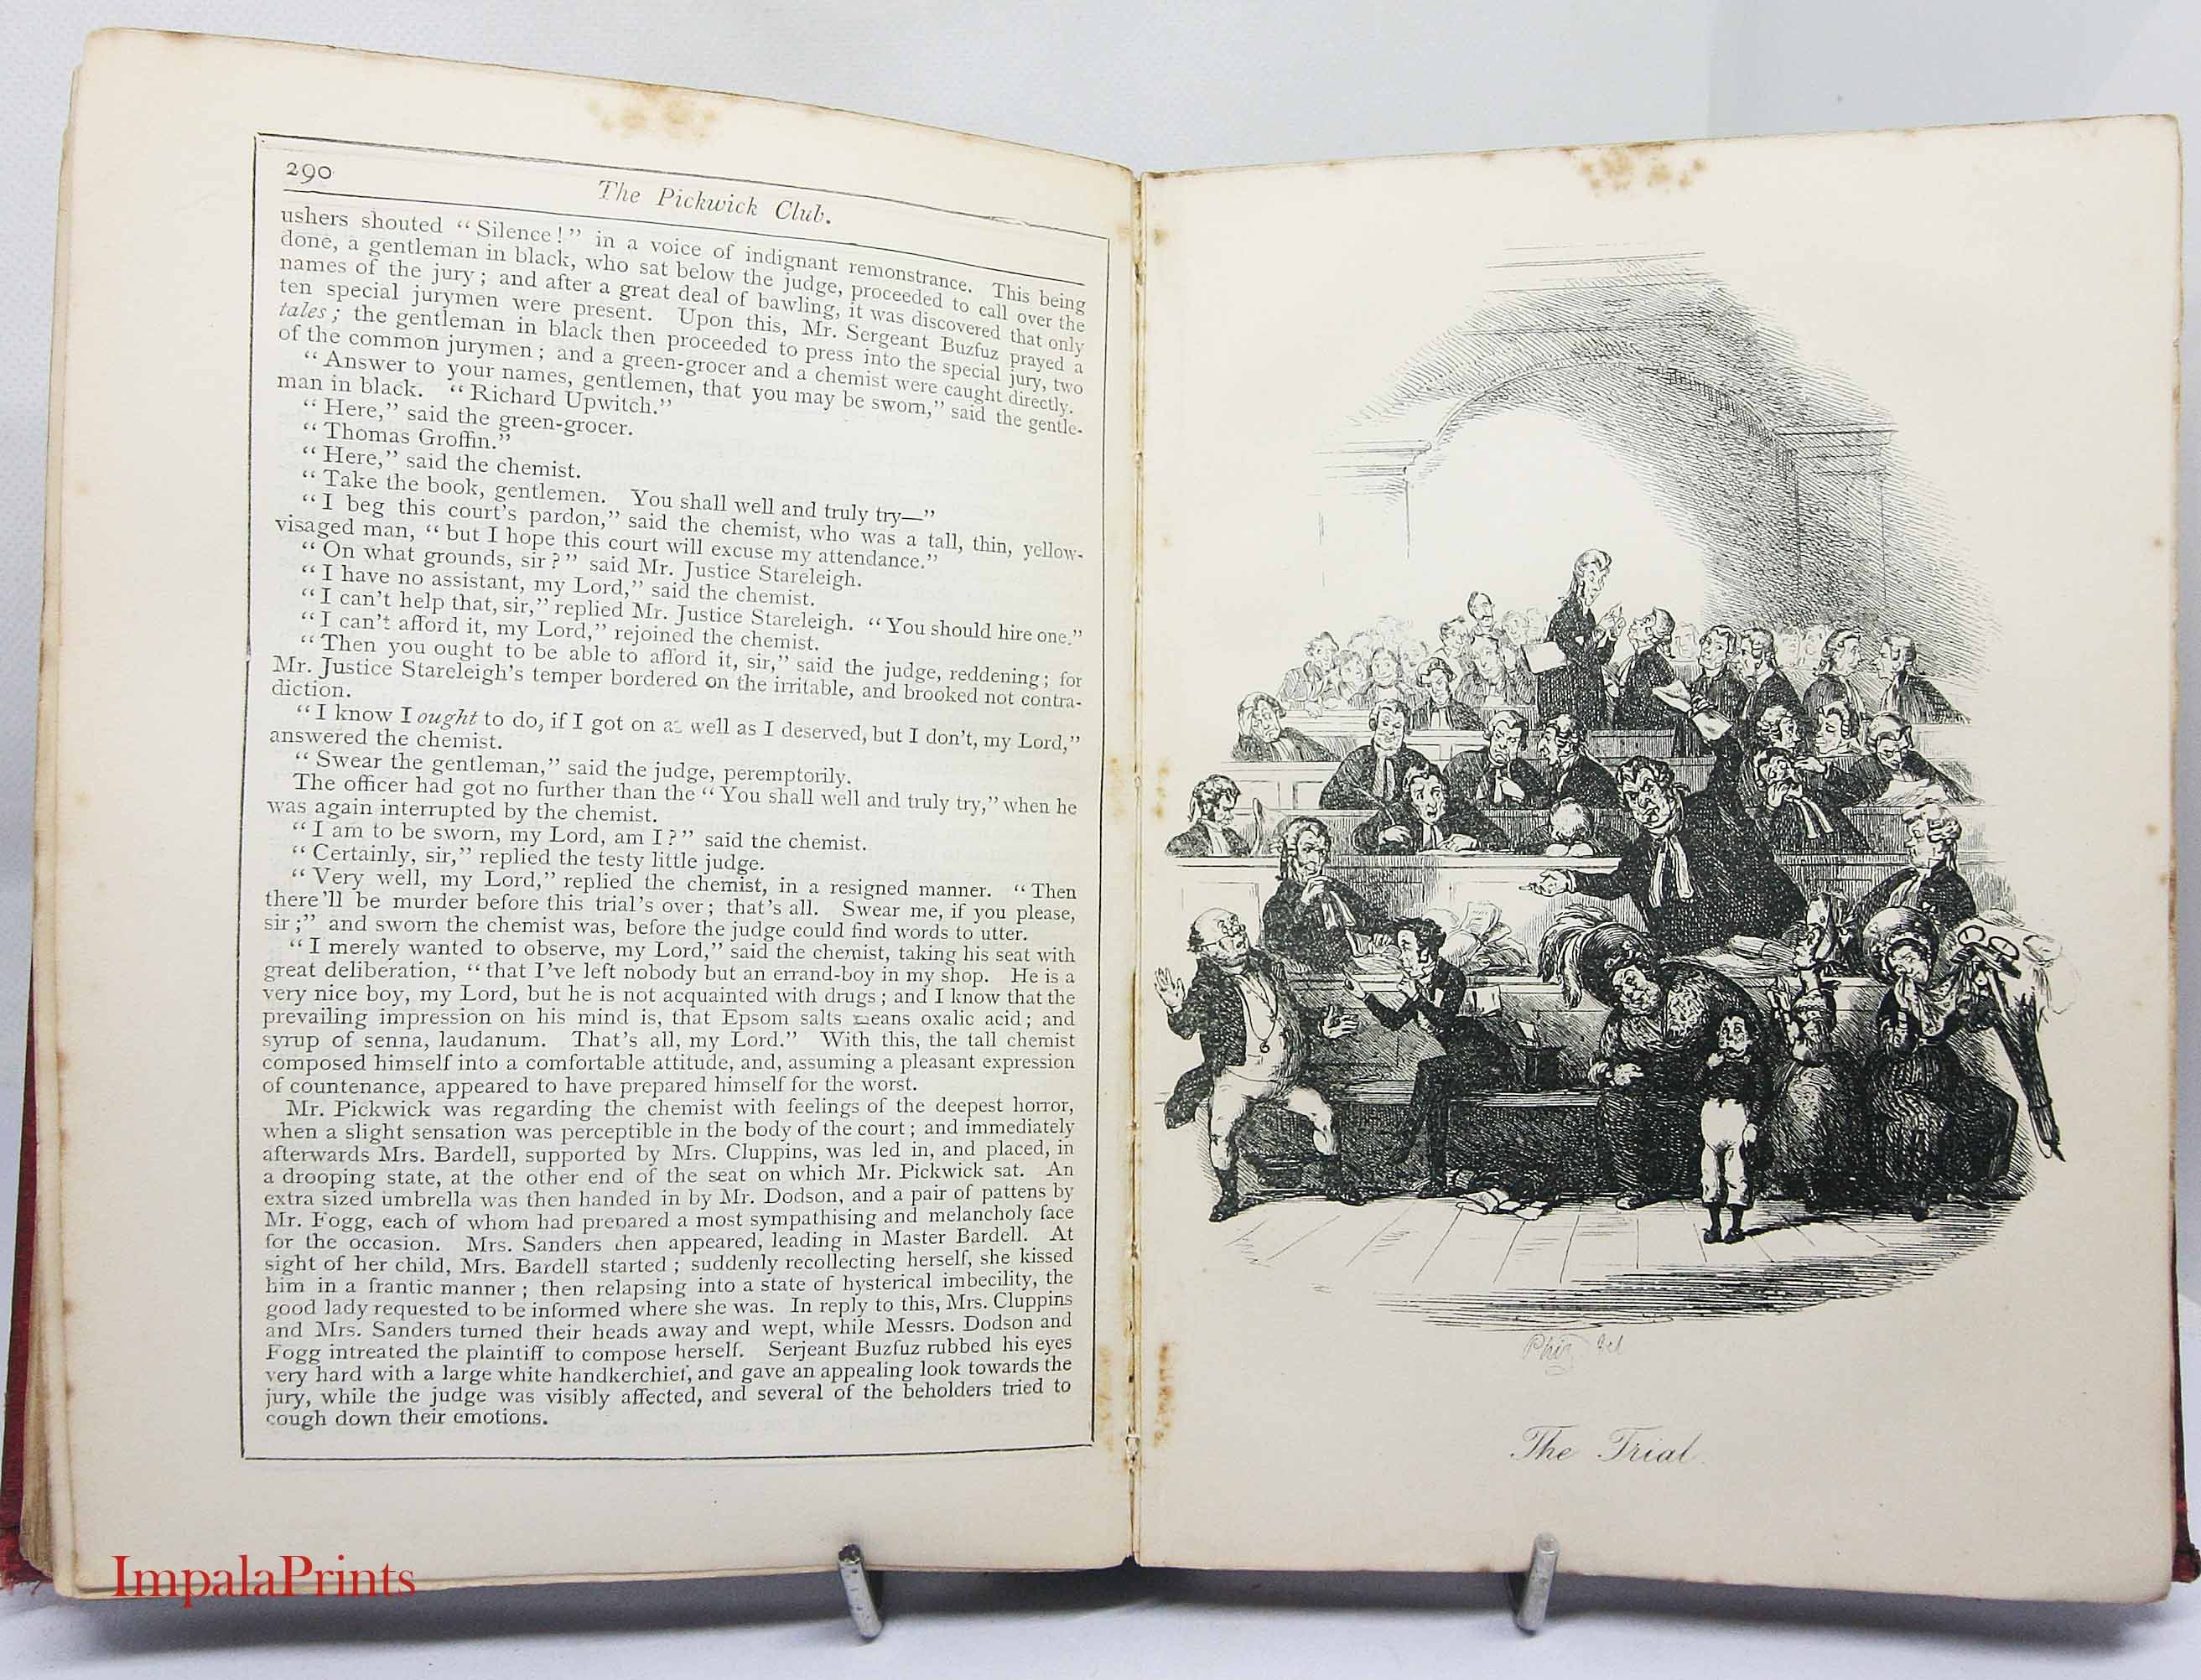 290
The Pickwick Club.
ushers shouted “Silence!” in a voice of indignant remonstrance. This being
done, a gentleman in black, who sat below the judge, proceeded to call over the
names of the jury; and after a great deal of bawling, it was discovered that only
ten special jurymen were present. Upon this, Mr. Sergeant Buzfuz prayed a
tales; the gentleman in black then proceeded to press into the special jury, two
of the common jurymen; and a green-grocer and a chemist were caught directly.
“Answer to your names, gentlemen, that you may be sworn,” said the gentle-
man in black. “Richard Upwitch.”
“Here,” said the green-grocer.
“Thomas Groffin.”
“Here,” said the chemist.
“Take the book, gentlemen. You shall well and truly try—”
“I beg this court's pardon,” said the chemist, who was a tall, thin, yellow-
visaged man, “but I hope this court will excuse my attendance.”
“On what grounds, sir?” said Mr. Justice Stareleigh.
“I have no assistant, my Lord,” said the chemist.
“I can't help that, sir,” replied Mr. Justice Stareleigh. “You should hire one.”
“I can't afford it, my Lord,” rejoined the chemist.
“Then you ought to be able to afford it, sir,” said the judge, reddening; for
Mr. Justice Stareleigh's temper bordered on the irritable, and brooked not contra-
diction.
“I know I ought to do, if I got on as well as I deserved, but I don't, my Lord,”
answered the chemist.
“Swear the gentleman,” said the judge, peremptorily.
The officer had got no further than the “You shall well and truly try,” when he
was again interrupted by the chemist.
“I am to be sworn, my Lord, am I?” said the chemist.
“Certainly, sir,” replied the testy little judge.
“Very well, my Lord,” replied the chemist, in a resigned manner. “Then
there'll be murder before this trial's over; that's all. Swear me, if you please,
sir;” and sworn the chemist was, before the judge could find words to utter.
“I merely wanted to observe, my Lord,” said the chemist, taking his seat with
great deliberation, “that I've left nobody but an errand-boy in my shop. He is a
very nice boy, my Lord, but he is not acquainted with drugs; and I know that the
prevailing impression on his mind is, that Epsom salts means oxalic acid; and
syrup of senna, laudanum. That's all, my Lord.” With this, the tall chemist
composed himself into a comfortable attitude, and, assuming a pleasant expression
of countenance, appeared to have prepared himself for the worst.
Mr. Pickwick was regarding the chemist with feelings of the deepest horror,
when a slight sensation was perceptible in the body of the court; and immediately
afterwards Mrs. Bardell, supported by Mrs. Cluppins, was led in, and placed, in
a drooping state, at the other end of the seat on which Mr. Pickwick sat. An
extra sized umbrella was then handed in by Mr. Dodson, and a pair of pattens by
Mr. Fogg, each of whom had prepared a most sympathising and melancholy face
for the occasion. Mrs. Sanders then appeared, leading in Master Bardell. At
sight of her child, Mrs. Bardell started; suddenly recollecting herself, she kissed
him in a frantic manner; then relapsing into a state of hysterical imbecility, the
good lady requested to be informed where she was. In reply to this, Mrs. Cluppins
and Mrs. Sanders turned their heads away and wept, while Messrs. Dodson and
Fogg intreated the plaintiff to compose herself. Serjeant Buzfuz rubbed his eyes
very hard with a large white handkerchief, and gave an appealing look towards the
jury, while the judge was visibly affected, and several of the beholders tried to
cough down their emotions.
Phiz del
The Trial.
ImpalaPrints